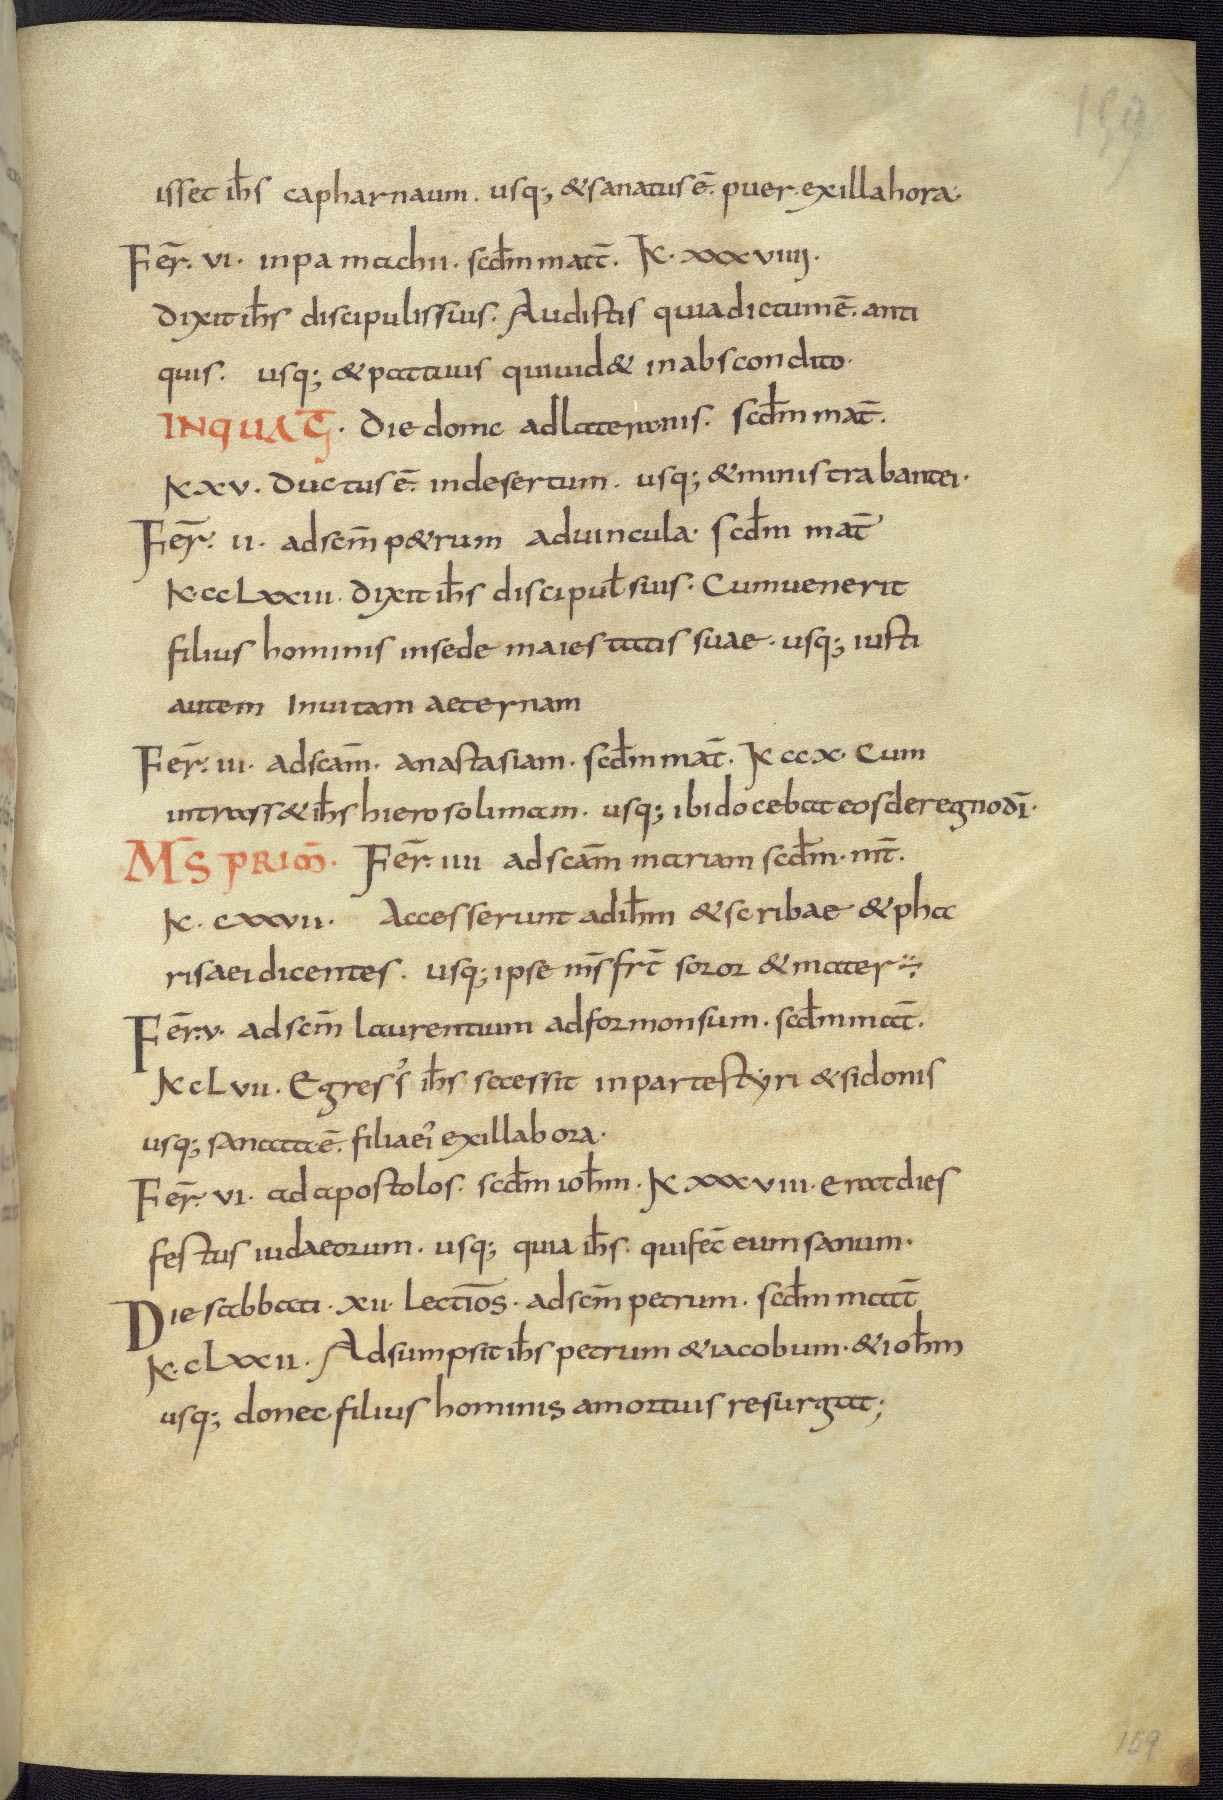 159
isset ih̄s capharnaum. usq; & sanatus ē. puer. ex illa hora.
Fer̄. vi. in pamachii. scd̄m matt̄. K̄. xxxviiii.
Dixit ih̄s discipulis suis. Audistis quia dictum ē. anti
quis. usq; & pat tuus qui uid& in abscondito.
IN QUAḠ. Die domc ad lateranis. scd̄m mat̄.
K̄ xv. Ductus ē. in desertum. usq; & ministrabant ei.
Fer̄. ii. ad scm̄ p&rum ad uincula. scd̄m mat̄
K̄. cclxxiii. Dixit ih̄s discipul̄ suis. Cum uenerit
filius hominis in sede maiestatis suae. usq; iusti
autem In uitam aeternam
Fer̄. iii. ad scam̄. anastasiam. scd̄m mat̄. K̄ ccx. Cum
intrass& ih̄s hierosolimam. usq; ibi docebat eos de regno dī.
M̄S PRIM̄. Fer̄. iiii ad scam̄ mariam scd̄m. mt̄.
K̄. cxxvii. Accesserunt ad ih̄m & scribae & pha
risaei dicentes. usq; ipse ms̄ frt̄ soror & mater
Fer̄. v. ad scm̄ laurentium ad formonsum. scd̄m mat̄.
K̄ clvii. Egres's ih̄s secessit in partes tyri & sidonis
usq; sanata ē. filia ei' ex illa hora.
Fer̄. vi. ad apostolos. scd̄m ioh̄m. K̄ xxxviii. erat dies
festus iudaeorum. usq; quia ih̄s. qui fec̄ eum sanum.
Die sabbati. xii. lectiōs. ad scm̄ petrum. scd̄m matt̄
K̄. clxxii. Adsumpsit ih̄s petrum & iacobum. & ioh̄m
usq; donec filius hominis a mortuis resurgat;
159